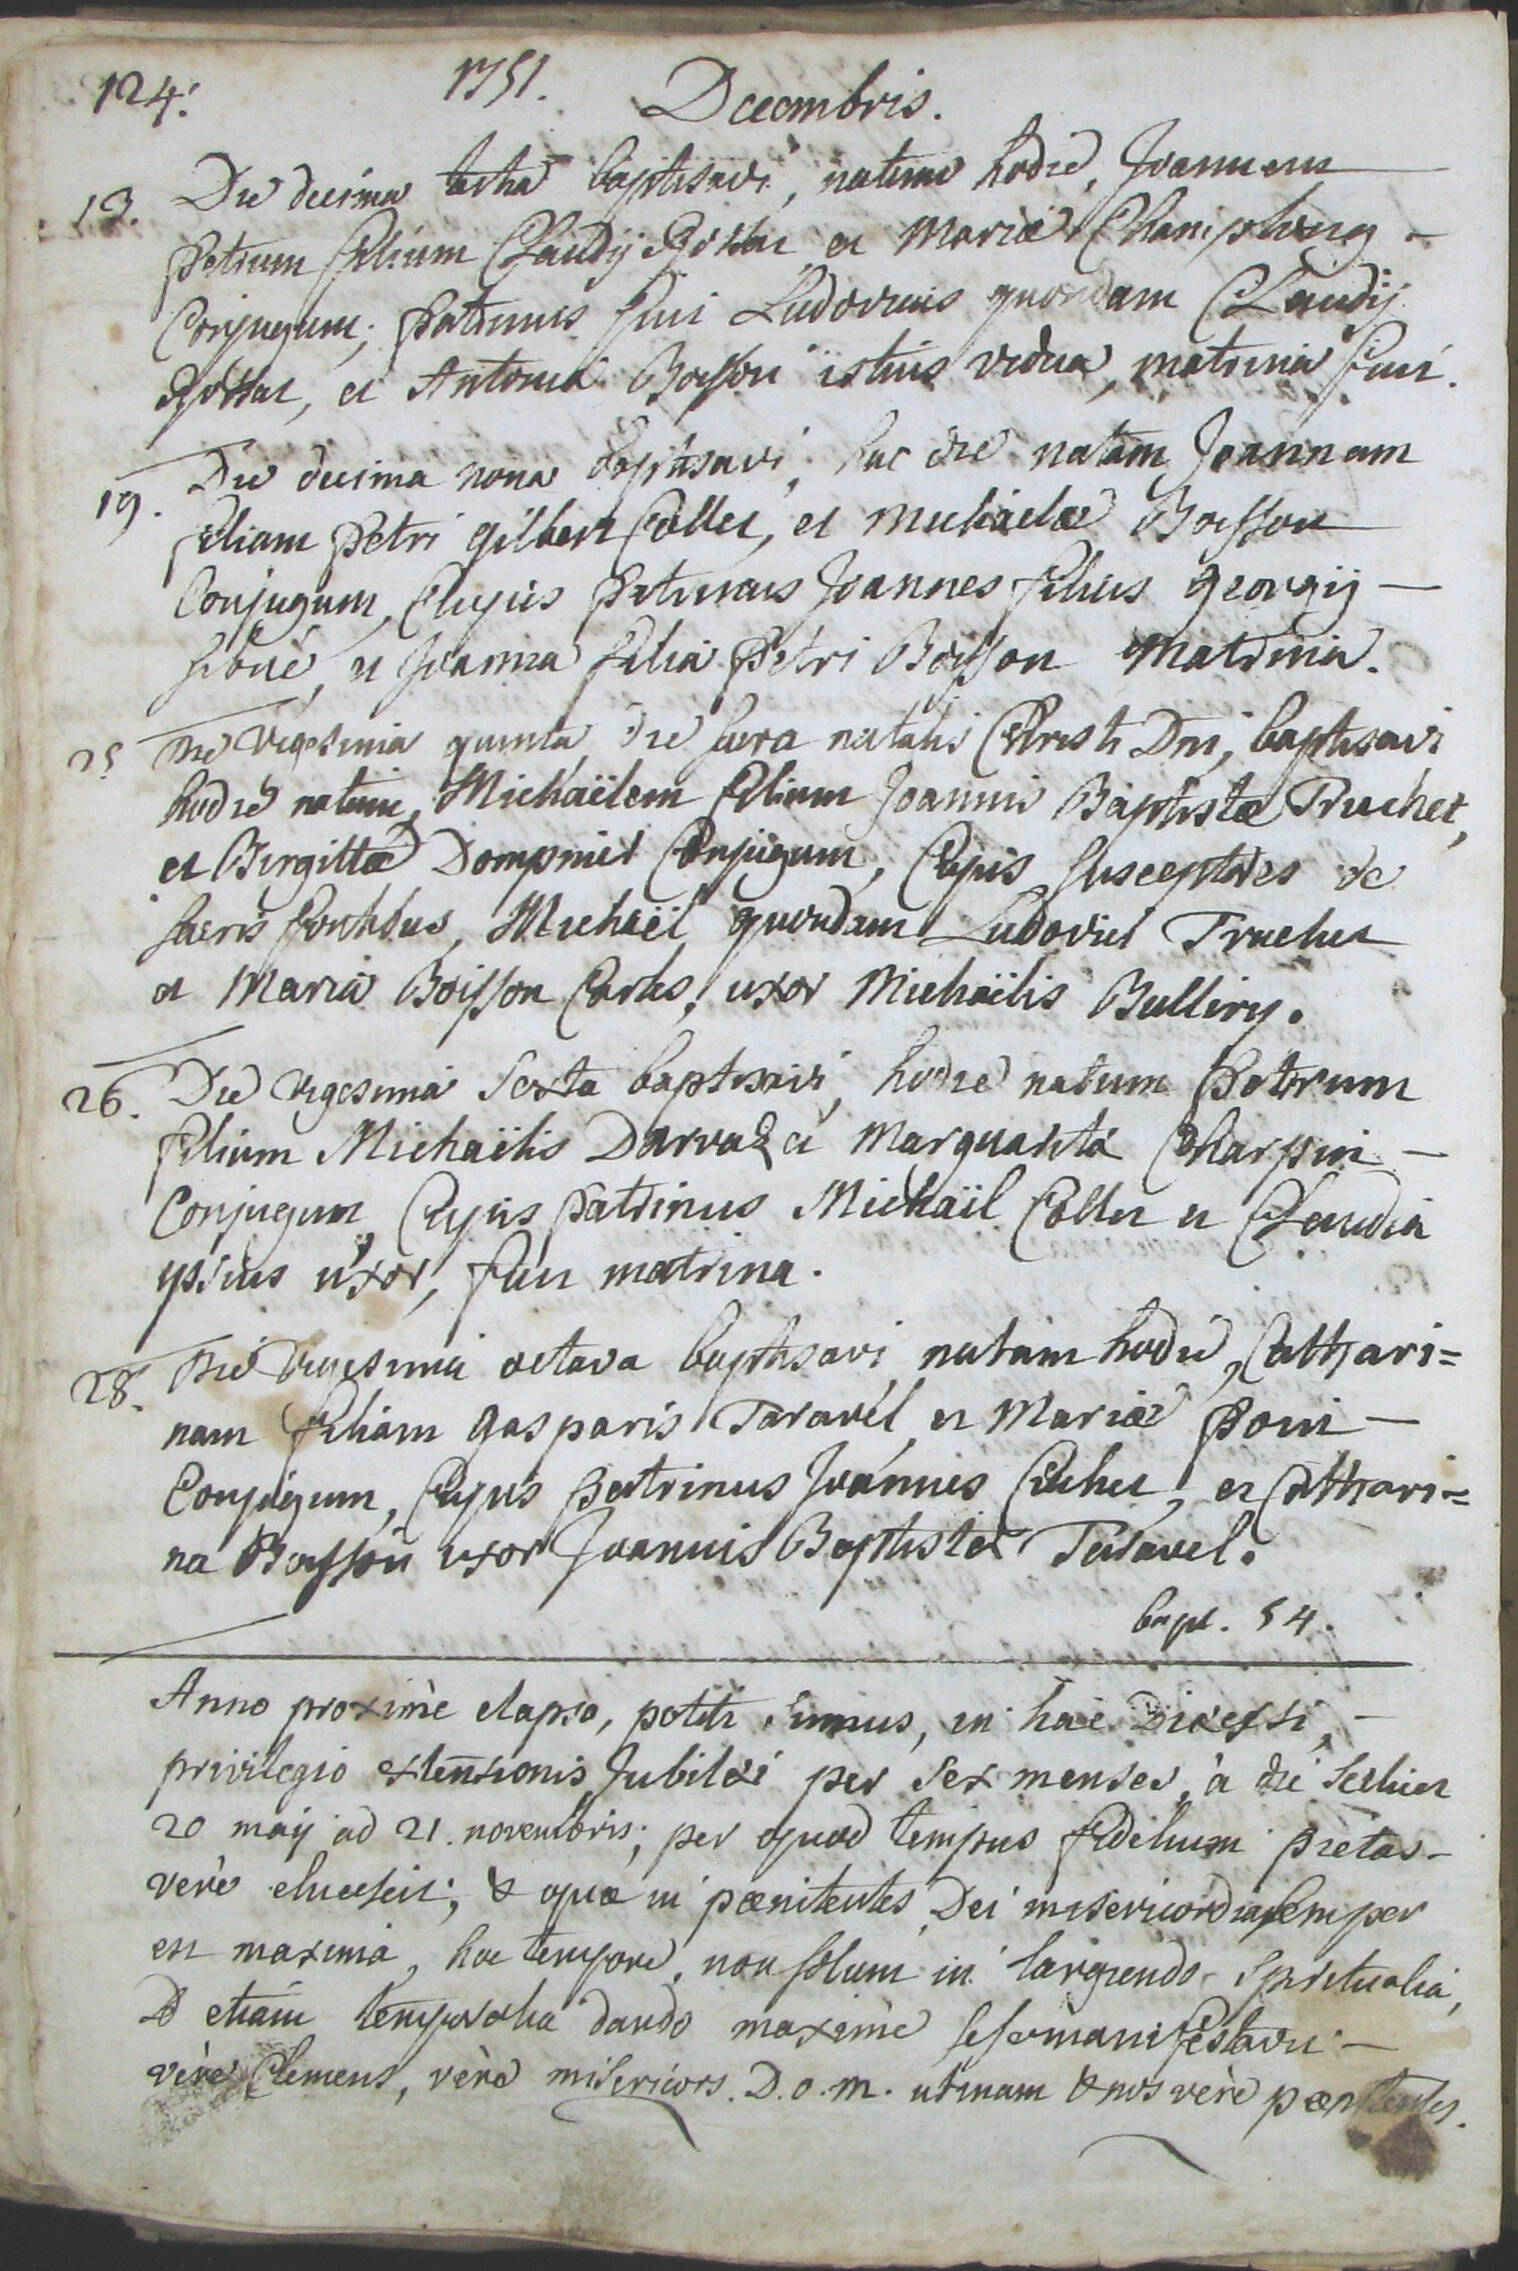 124. 1751. Decembris.
13. Die decima tertia baptisavi, natum hodie, Joannem
Petrum filium Claudij et Mariæ
Conjugum; patrinus fuit Ludovicus quondam Claudij
et Antonia Boisson istius vidua, matrina fuit.
19. Die decima nona baptisavi, hac die natam Joannam
filiam Petri gilbert Collet, et Michaelæ Boisson
Conjugum, Cujus Patrinus Joannes filius georgij
et Joanna filia Petri Boisson Matrina.
25 Die vigesima quinta, die sacra natalis Christi Dni, baptisavi
hodie natum, Michaëlem filium Joannis Baptistæ Truchet,
et Birgittæ Dompmet Conjugum, Cujus susceptores de
sacris fontibus, Michaël quondam Ludovici Truchet
et Maria Boisson Carles, uxor Michaëlis Bulliry.
26. Die vigesima Sexta baptisavi, hodie natum Petrum
filium Michaëlis Darvaz et Margaritæ Charpin
Conjugum, Cujus Patrinus Michaël Collet et Claudia
ypsius uxor, fuit matrina.
28. Die vigesima octava baptisavi natam hodie, Cathari=
nam filiam gasparis Taravel et Mariæ
Conjugum, Cujus Patrinus Joannes et Cathari=
na Boisson uxor Joannis Baptistæ Taravel.
bapt. 54.
Anno proximè elapso, potiti sumus, in hac Diœcesi,
privilegio extensionis Jubilæi per sex menses, à die scilicet
20 maij ad 21. novembris; per quod tempus fidelium pietas
verè eluxit; & quæ in pœnitentes Dei misericordia semper
est maxima, hoc tempore, non solum in largiendo spiritualia,
etiam temporalia dando maximè sese manifestavit
verè Clemens, verè misericors D.o.m. utinam & nos verè pœnitentes.